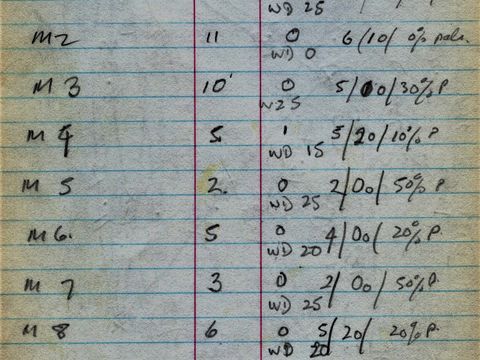 WD 25
M2 11 0 6/10/ 0% pale.
WD 0
M 3 10 0 5/00/30% P
W25
M 4 5. 1 5/20/10% P
WD 15
M 5 2. 0 2/00/ 50% P
WD 25
M 6. 5 0 4/00/ 20% P.
WD 20
M 7 3 0 2/00/ 50% P.
WD 25
M 8 6 0 5/20/ 20% P.
WD 20